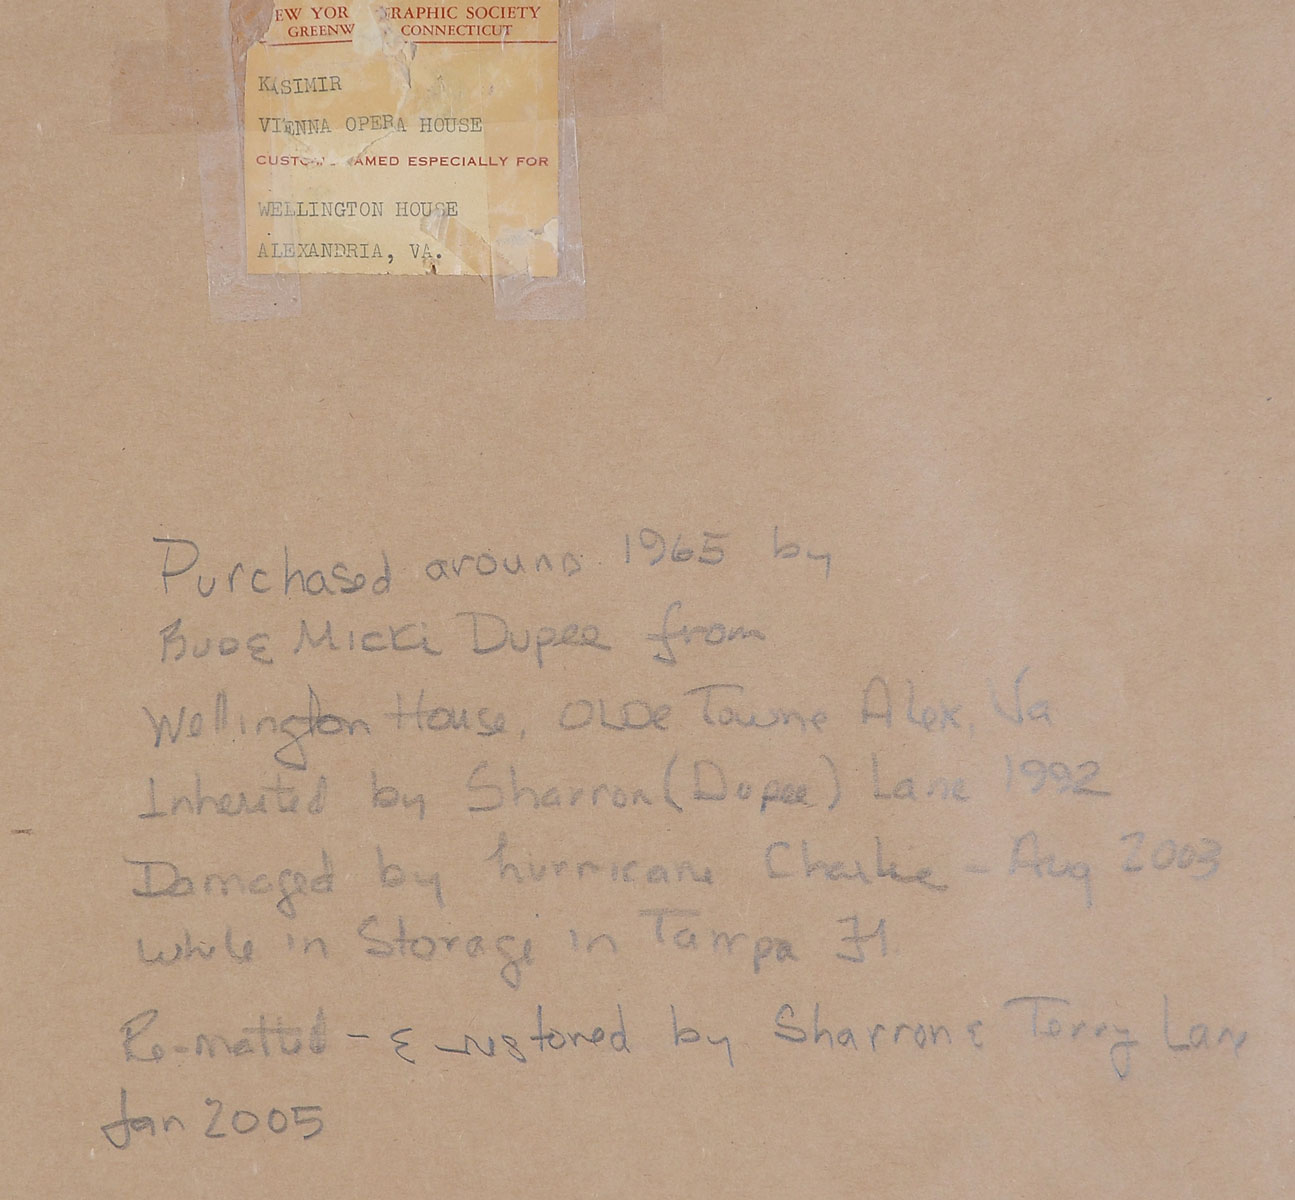 EW YOR GRAPHIC SOCIETY
GREENW CONNECTICUT
KASIMIR
VIENNA OPERA HOUSE
CUSTOM AMED ESPECIALLY FOR
WELLINGTON HOUSE
ALEXANDRIA, VA.
Purchased around 1965 by
Bud & Micki Dupee from
Wellington House, Olde Towne Alex, Va
Inherited by Sharron (Dupee) Lane 1992
Damaged by hurricane Charlie - Aug 2003
while in Storage in Tampa Fl.
Re-matted - & restored by Sharron & Terry Lane
Jan 2005